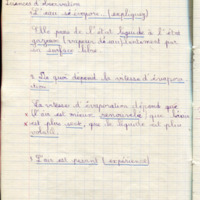 Sciences d'observation
L'eau s'évapore (expliquez)
Elle passe de l'état liquide à l'état
gazeux (vapeur d'eau) lentement par
sa surface libre.
De quoi dépend la vitesse d'évapora
tion
La vitesse d'évaporation dépend que
l'air est mieux renouvelé que
est plus sec, que le liquide est plus
volatil
L'air est pesant (expérience)